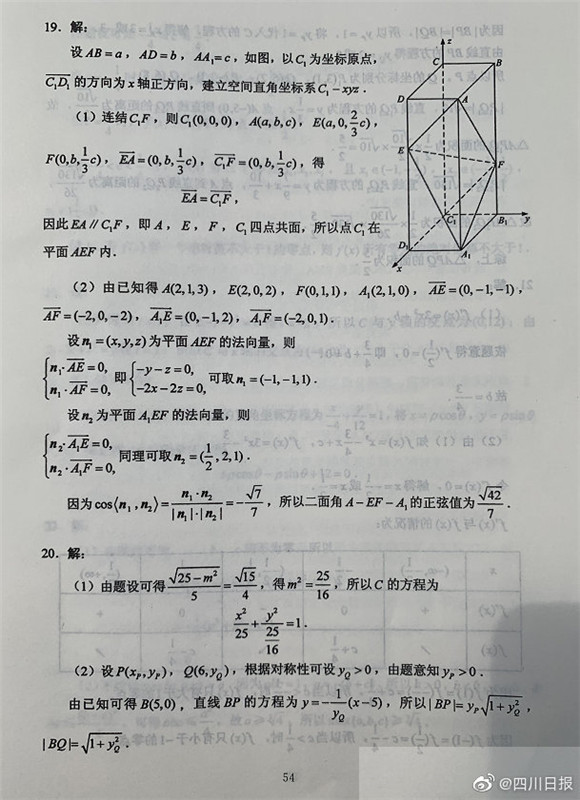 19．解：
设 AB = a，AD = b，AA₁ = c，如图，以 C₁ 为坐标原点，
C₁D₁ 的方向为 x 轴正方向，建立空间直角坐标系 C₁ - xyz．
（1）连结 C₁F，则 C₁(0,0,0)，A(a,b,c)，E(a,0,2/3c)，
F(0,b,1/3c)，EA = (0,b,1/3c)，C₁F = (0,b,1/3c)，得
EA = C₁F，
因此 EA // C₁F，即 A，E，F，C₁ 四点共面，所以点 C₁ 在
平面 AEF 内．
z
C
B
D
A
E
F
C₁
B₁
y
D₁
A₁
x
（2）由已知得 A(2,1,3)，E(2,0,2)，F(0,1,1)，A₁(2,1,0)，AE = (0,-1,-1)，
AF = (-2,0,-2)，A₁E = (0,-1,2)，A₁F = (-2,0,1)．
设 n₁ = (x,y,z) 为平面 AEF 的法向量，则
{n₁·AE = 0, n₁·AF = 0, 即 {-y-z=0, -2x-2z=0, 可取 n₁ = (-1,-1,1)．
设 n₂ 为平面 A₁EF 的法向量，则
{n₂·A₁E = 0, n₂·A₁F = 0, 同理可取 n₂ = (1/2,2,1)．
因为 cos⟨n₁,n₂⟩ = n₁·n₂/|n₁|·|n₂| = -√7/7，所以二面角 A-EF-A₁ 的正弦值为 √42/7．
20．解：
（1）由题设可得 √(25-m²)/5 = √15/4，得 m² = 25/16，所以 C 的方程为
x²/25 + y²/(25/16) = 1．
（2）设 P(x_P,y_P)，Q(6,y_Q)，根据对称性可设 y_Q > 0，由题意知 y_P > 0．
由已知可得 B(5,0)，直线 BP 的方程为 y = -1/y_Q(x-5)，所以 |BP| = y_P√(1+y_Q²)，
|BQ| = √(1+y_Q²)．
54
@四川日报